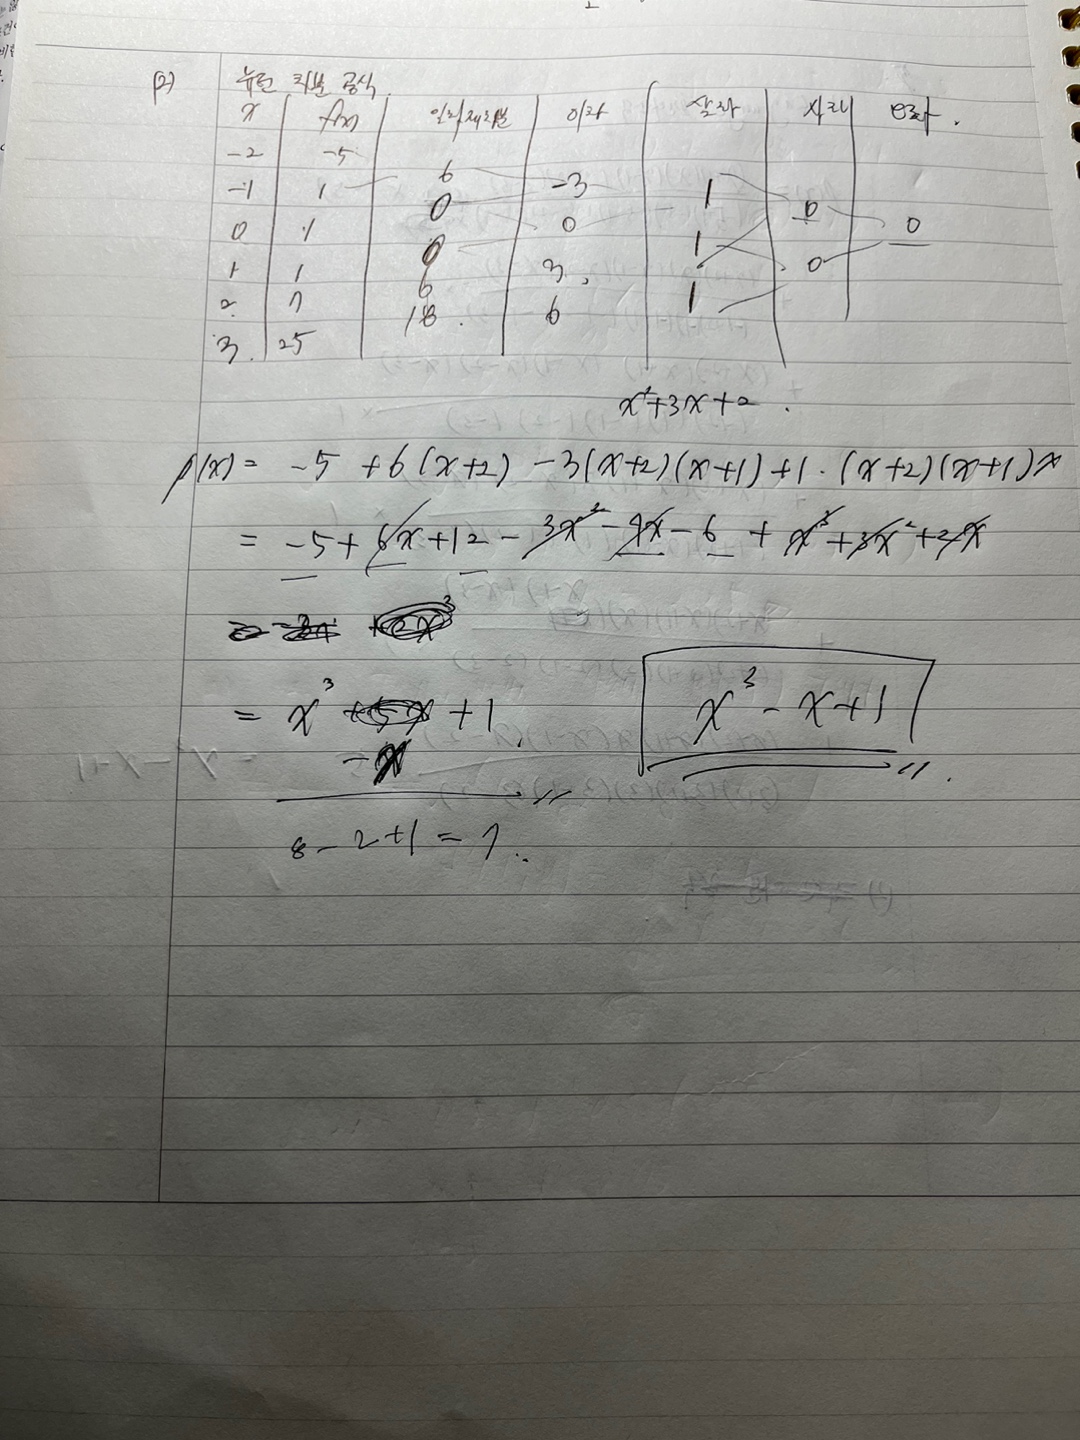 (2) 뉴턴 차분 공식
x f(x) 이차 삼차 사차 오차.
-2 -5
6
-1 1 -3 1
0 0
0 1 0 0
0 1
1 1 3, 0
6 1
2 7 6
18.
3. 25
x²+3x+2.
p(x) = -5 +6(x+2) -3(x+2)(x+1) +1·(x+2)(x+1)x
= -5+6x+12 -3x²-9x-6 + x³+3x²+2x
= x³ +1
-x
x³-x+1
8-2+1=7..